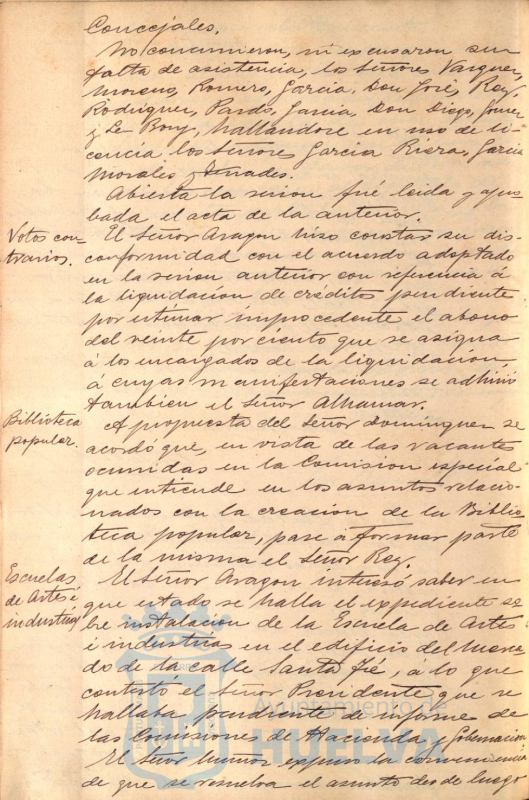 Concejales.
No concurrieron, ni excusaron su
falta de asistencia, los Señores Vazquez,
Moreno, Romero, Garcia, Don José, Rey,
Rodriguez, Pardo, Garcia, Don Diego, Gomez
y Le Bony, hallandose en uso de li-
cencia los Señores Garcia Riera, Garcia
Morales y
Abierta la sesion fué leida y apro-
bada el acta de la anterior.
Votos con-
trarios.
El Señor Aragon hizo constar su dis-
conformidad con el acuerdo adoptado
en la sesion anterior con referencia á
la liquidación de créditos pendiente
por estimar improcedente el abono
del veinte por ciento que se asigna
á los encargados de la liquidación,
á cuyas manifestaciones se adhirió
tambien el Señor Alhamar.
Biblioteca
popular.
A propuesta del Señor Dominguez se
acordó que, en vista de las vacantes
ocurridas en la Comision especial
que entiende en los asuntos relacio-
nados con la creacion de la Biblio-
teca popular, pase a formar parte
de la misma el Señor Rey.
Escuelas
de Artes e
industrias
El Señor Aragon interesó saber en
que estado se halla el expediente so-
bre instalacion de la Escuela de Artes
é industrias en el edificio del Merca-
do de la calle Santa Fé, á lo que
contestó el Señor Presidente que se
hallaba pendiente de informe de
las Comisiones de Hacienda y Gobernacion
El Señor Muñoz expuso la conveniencia
de que se resuelva el asunto desde luego
Ayuntamiento de
HUELVA